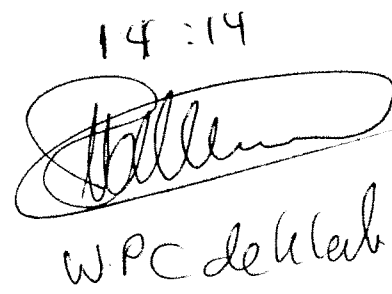 14:14
W.P.C de Klerk